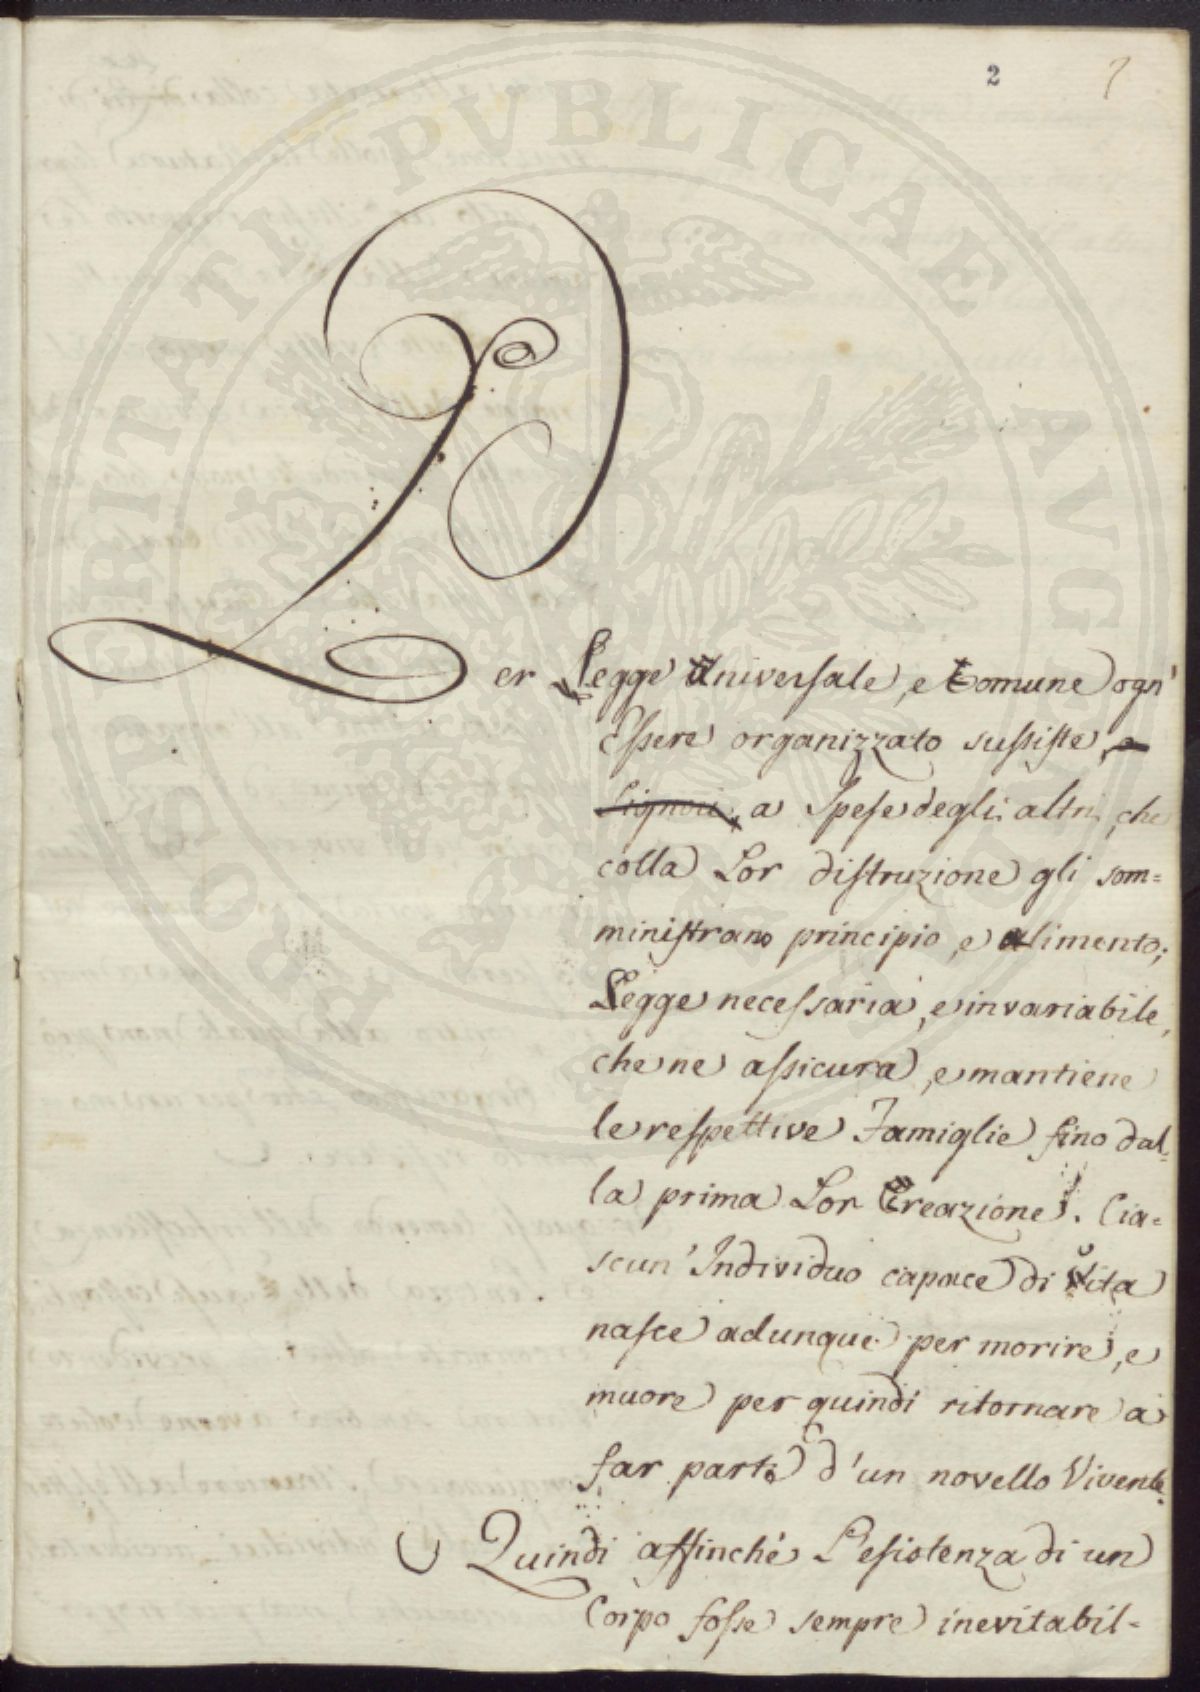 2
Per Legge Universale, e Comune ogn'
Essere organizzato sussiste, e
Signori, a Spese degli altri, che
colla Lor distruzione gli som=
ministrano principio, e alimento;
Legge necessaria, e invariabile,
che ne assicura, e mantiene
le respettive Famiglie fino dal=
la prima Lor Creazione. Cia=
scun' Individuo capace di Vita
nasce adunque per morire, e
muore per quindi ritornare a
far parte d'un novello Vivente.
Quindi affinchè L'esistenza di un
Corpo fosse sempre inevitabil-
PROSPERITATI PVBLICAE AVGENDAE